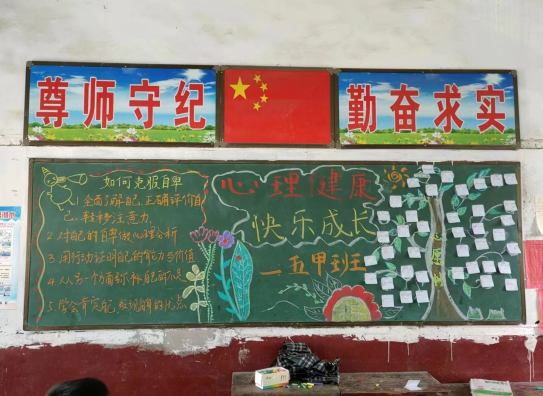 尊师守纪
勤奋求实
如何克服自卑
1.全面了解自己,正确评价自
己,转移注意力.
2.对自己的自卑做心理分析
3.用行动证明自己的能力与价值
4.从另一个方面弥补自己的不足
5.学会肯定自己,发现
心理健康
快乐成长
五甲班